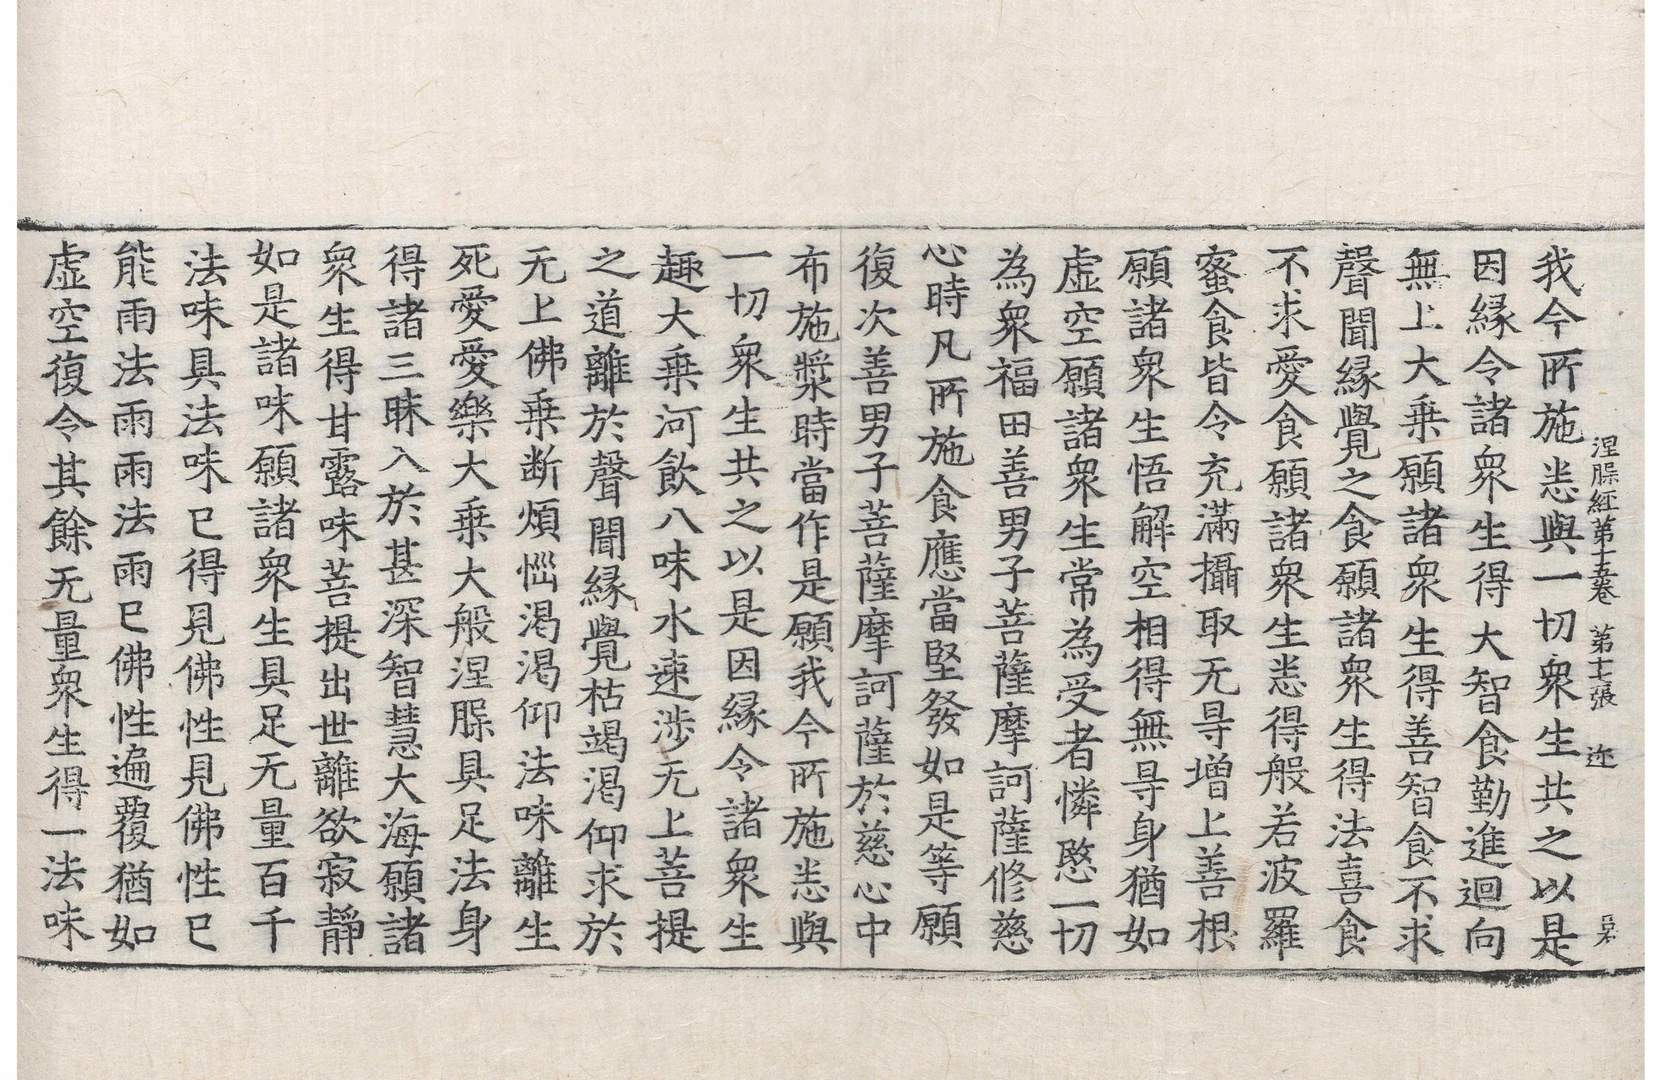 涅槃經第十五卷 第十七張 迩
我今所施悉與一切衆生共之以是
因縁令諸衆生得大智食勤進迴向
無上大乗願諸衆生得善智食不求
聲聞縁覺之食願諸衆生得法喜食
不求愛食願諸衆生悉得般若波羅
蜜食皆令充滿攝取无㝵增上善根
願諸衆生悟解空相得無㝵身猶如
虚空願諸衆生常為受者憐愍一切
為衆福田善男子菩薩摩訶薩修慈
心時凡所施食應當堅發如是等願
復次善男子菩薩摩訶薩於慈心中
布施漿時當作是願我今所施悉與
一切衆生共之以是因縁令諸衆生
趣大乗河飲八味水速涉无上菩提
之道離於聲聞縁覺枯竭渴仰求於
无上佛乗断煩惱渴渴仰法味離生
死愛愛樂大乗大般涅槃具足法身
得諸三昧入於甚深智慧大海願諸
衆生得甘露味菩提出世離欲寂靜
如是諸味願諸衆生具足无量百千
法味具法味已得見佛性見佛性已
能雨法雨雨法雨已佛性遍覆猶如
虚空復令其餘无量衆生得一法味